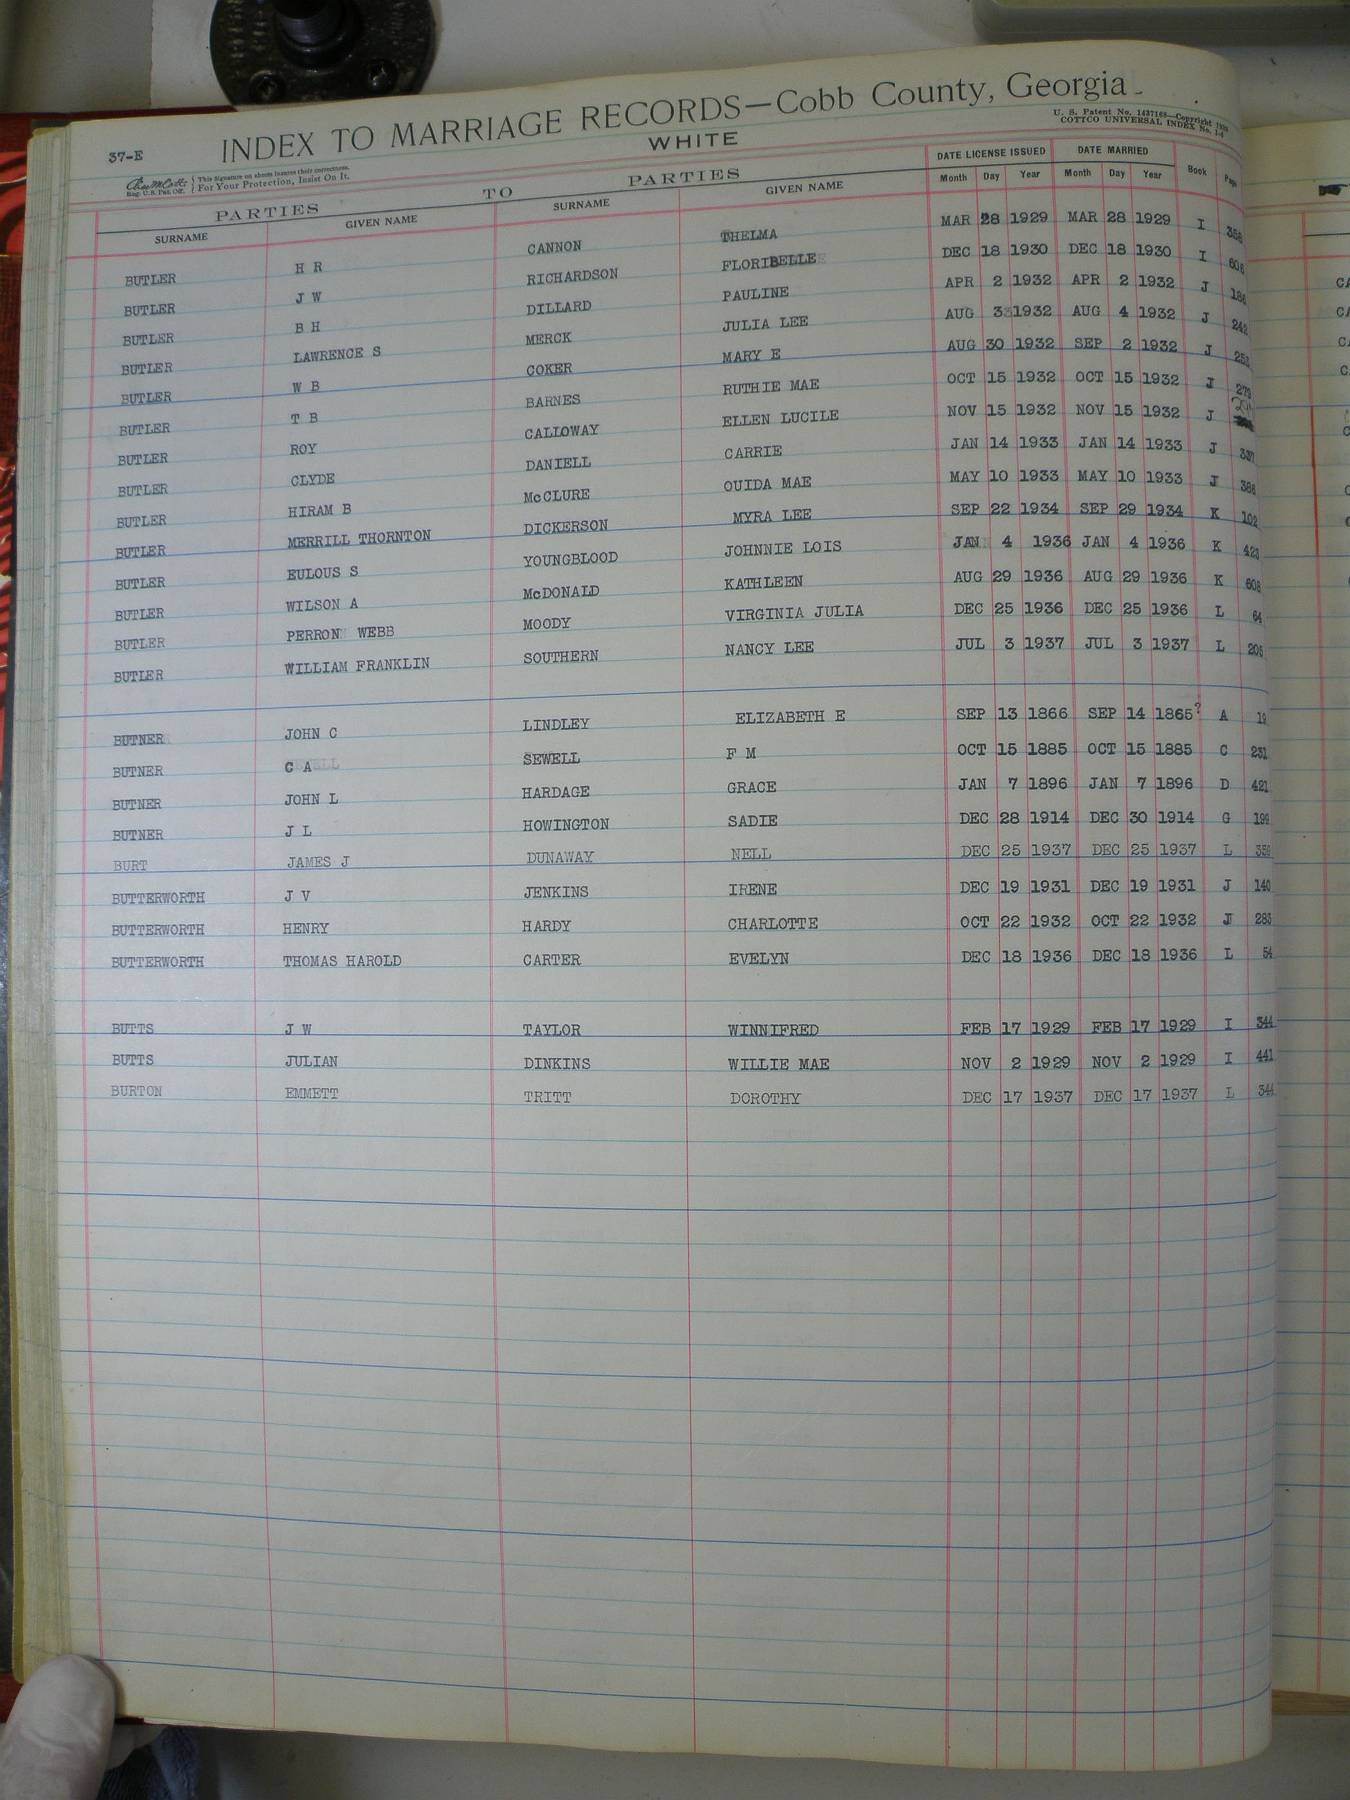 37-E
INDEX TO MARRIAGE RECORDS—Cobb County, Georgia
U. S. Patent No. 1437168—Copyright
COTTCO UNIVERSAL INDEX No.
WHITE
This Signature on sheets insures their correctness.
Reg. U.S. Pat. Off. For Your Protection, Insist On It.
PARTIES TO PARTIES DATE LICENSE ISSUED DATE MARRIED
SURNAME GIVEN NAME SURNAME GIVEN NAME Month Day Year Month Day Year Book Page
BUTLER H R CANNON THELMA MAR 28 1929 MAR 28 1929 I
BUTLER J W RICHARDSON FLORIBELLE DEC 18 1930 DEC 18 1930 I
BUTLER B H DILLARD PAULINE APR 2 1932 APR 2 1932 J
BUTLER LAWRENCE S MERCK JULIA LEE AUG 3 1932 AUG 4 1932 J
BUTLER W B COKER MARY E AUG 30 1932 SEP 2 1932 J
BUTLER T B BARNES RUTHIE MAE OCT 15 1932 OCT 15 1932 J 279
BUTLER ROY CALLOWAY ELLEN LUCILE NOV 15 1932 NOV 15 1932 J
BUTLER CLYDE DANIELL CARRIE JAN 14 1933 JAN 14 1933 J 337
BUTLER HIRAM B McCLURE OUIDA MAE MAY 10 1933 MAY 10 1933 J 386
BUTLER MERRILL THORNTON DICKERSON MYRA LEE SEP 22 1934 SEP 29 1934 K 102
BUTLER EULOUS S YOUNGBLOOD JOHNNIE LOIS JAN 4 1936 JAN 4 1936 K 423
BUTLER WILSON A McDONALD KATHLEEN AUG 29 1936 AUG 29 1936 K 608
BUTLER PERRON WEBB MOODY VIRGINIA JULIA DEC 25 1936 DEC 25 1936 L 64
BUTLER WILLIAM FRANKLIN SOUTHERN NANCY LEE JUL 3 1937 JUL 3 1937 L 205
BUTNER JOHN C LINDLEY ELIZABETH E SEP 13 1866 SEP 14 1865? A 19
BUTNER C A SEWELL F M OCT 15 1885 OCT 15 1885 C 231
BUTNER JOHN L HARDAGE GRACE JAN 7 1896 JAN 7 1896 D 421
BUTNER J L HOWINGTON SADIE DEC 28 1914 DEC 30 1914 G 199
BURT JAMES J DUNAWAY NELL DEC 25 1937 DEC 25 1937 L
BUTTERWORTH J V JENKINS IRENE DEC 19 1931 DEC 19 1931 J 140
BUTTERWORTH HENRY HARDY CHARLOTTE OCT 22 1932 OCT 22 1932 J 283
BUTTERWORTH THOMAS HAROLD CARTER EVELYN DEC 18 1936 DEC 18 1936 L 54
BUTTS J W TAYLOR WINNIFRED FEB 17 1929 FEB 17 1929 I 344
BUTTS JULIAN DINKINS WILLIE MAE NOV 2 1929 NOV 2 1929 I 441
BURTON EMMETT TRITT DOROTHY DEC 17 1937 DEC 17 1937 L 344